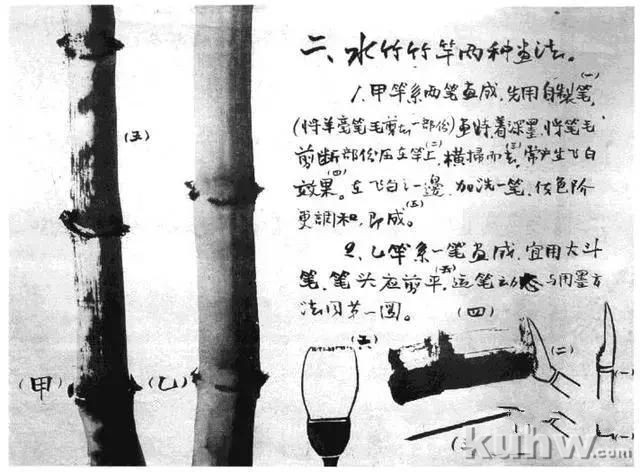 二、水竹竹竿两种画法。
1、甲竿系两笔画成，先用自製笔，(一)
(将羊毫笔毛剪去一部份)画时着深墨，将笔毛
剪断部份压在竿上，(二)横掃而去，(三)常产生飞白
效果。(四)在飞白之一邊，加洗一笔，使色阶
更調和，即成。(五)
2、乙竿系一笔画成，宜用大斗
笔，笔头应剪平，(六)运笔动态与用墨方
法同第一图。
(五)
(甲)
(乙)
(六)
(四)
(二)
(一)
(三)
(一)
kuhw.com